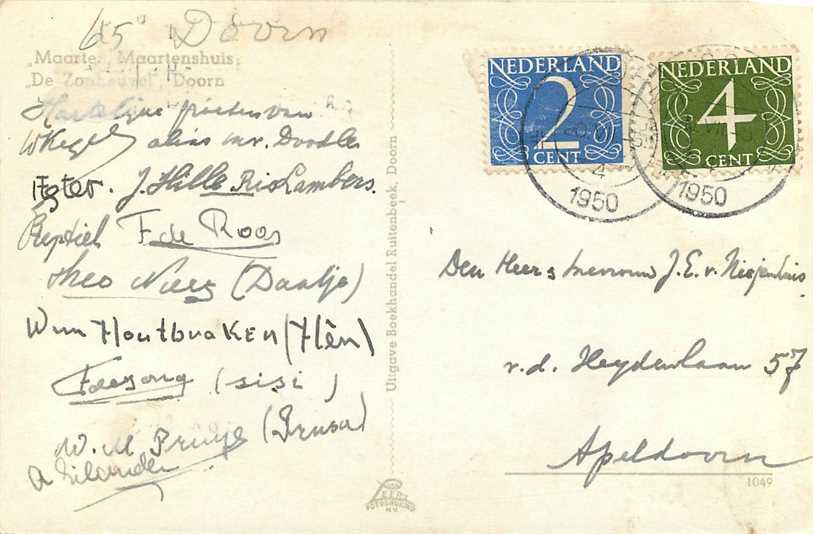 65° Doorn
„Maarten Maartenshuis"
„De Zonheuvel", Doorn
Hartelijke groeten van
W Kegel alias mr. Doodle
Ester. J. Hille Ris Lambers.
Reptiel F de Roos
Theo (Daatje)
Wim Houtbraken (Hèn)
F de Jong (sisi)
W. M. Pruys (Brusa)
Uitgave Boekhandel Ruitenbeek, Doorn
NEDERLAND
2
CENT
NEDERLAND
4
CENT
4
1950
1950
Den Heer & Mevrouw J. E. v. Niejenhuis
v. d. Heydenlaan 57
Apeldoorn
1049